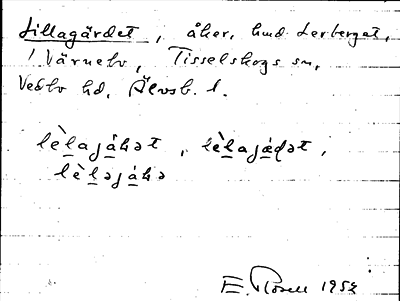 Lillagärdet, åker, hmd. Lerberget,
1. Värnebo, Tisselskogs sn,
Vedbo hd, Älvsb. l.
lèlajáhət, lèlajádət,
lèləjáhə
E. Rosell 1952